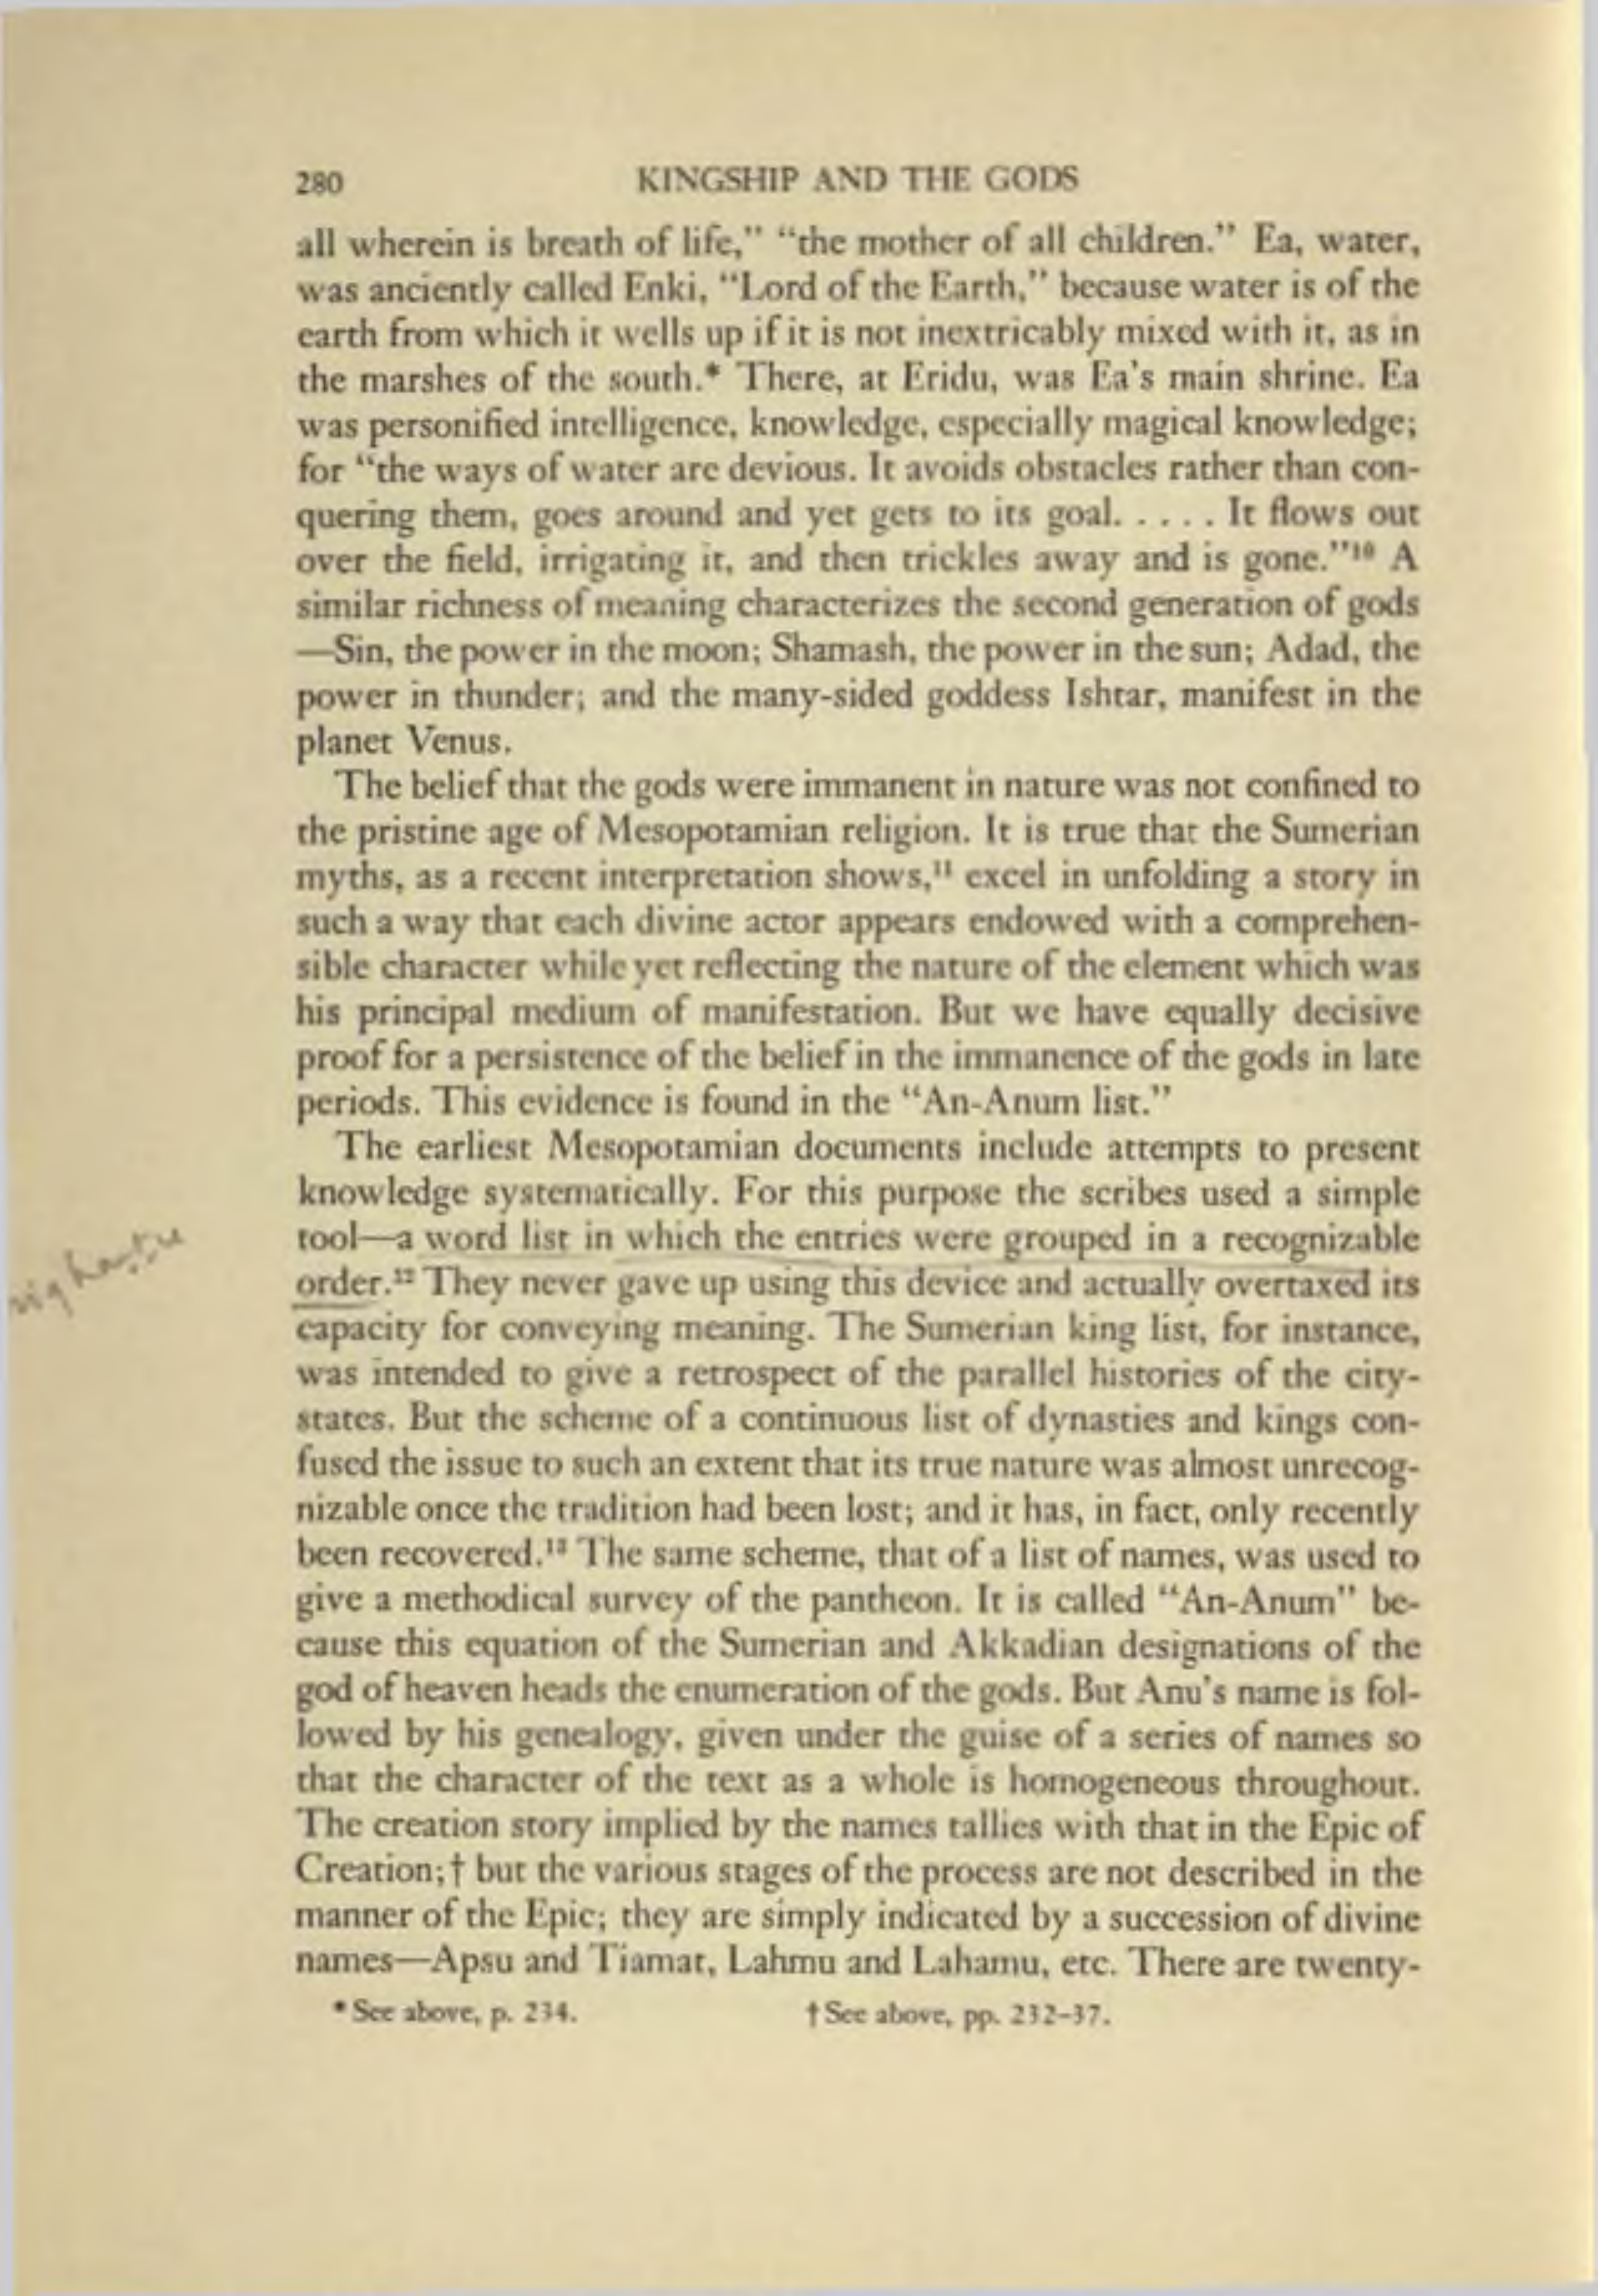 280 KINGSHIP AND THE GODS
all wherein is breath of life,” “the mother of all children.” Ea, water,
was anciently called Enki, “Lord of the Earth,” because water is of the
earth from which it wells up if it is not inextricably mixed with it, as in
the marshes of the south.* There, at Eridu, was Ea's main shrine. Ea
was personified intelligence, knowledge, especially magical knowledge;
for “the ways of water are devious. It avoids obstacles rather than con-
quering them, goes around and yet gets to its goal. . . . . It flows out
over the field, irrigating it, and then trickles away and is gone.”¹⁰ A
similar richness of meaning characterizes the second generation of gods
—Sin, the power in the moon; Shamash, the power in the sun; Adad, the
power in thunder; and the many-sided goddess Ishtar, manifest in the
planet Venus.
The belief that the gods were immanent in nature was not confined to
the pristine age of Mesopotamian religion. It is true that the Sumerian
myths, as a recent interpretation shows,¹¹ excel in unfolding a story in
such a way that each divine actor appears endowed with a comprehen-
sible character while yet reflecting the nature of the element which was
his principal medium of manifestation. But we have equally decisive
proof for a persistence of the belief in the immanence of the gods in late
periods. This evidence is found in the “An-Anum list.”
The earliest Mesopotamian documents include attempts to present
knowledge systematically. For this purpose the scribes used a simple
tool—a word list in which the entries were grouped in a recognizable
order.¹² They never gave up using this device and actually overtaxed its
capacity for conveying meaning. The Sumerian king list, for instance,
was intended to give a retrospect of the parallel histories of the city-
states. But the scheme of a continuous list of dynasties and kings con-
fused the issue to such an extent that its true nature was almost unrecog-
nizable once the tradition had been lost; and it has, in fact, only recently
been recovered.¹³ The same scheme, that of a list of names, was used to
give a methodical survey of the pantheon. It is called “An-Anum” be-
cause this equation of the Sumerian and Akkadian designations of the
god of heaven heads the enumeration of the gods. But Anu's name is fol-
lowed by his genealogy, given under the guise of a series of names so
that the character of the text as a whole is homogeneous throughout.
The creation story implied by the names tallies with that in the Epic of
Creation;† but the various stages of the process are not described in the
manner of the Epic; they are simply indicated by a succession of divine
names—Apsu and Tiamat, Lahmu and Lahamu, etc. There are twenty-
* See above, p. 234. † See above, pp. 232–37.